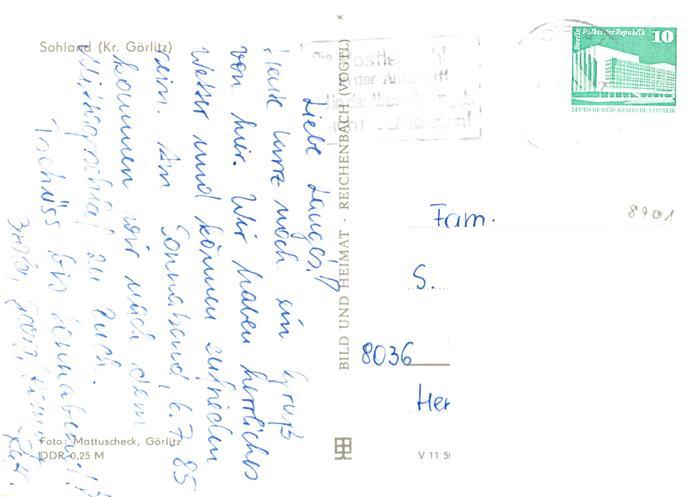 Sohland (Kr. Görlitz)
Liebe Langes!
Heute kurz noch ein Gruß
von hier. Wir haben herrliches
Wetter und können zufrieden
sein. Am Sonnabend, 6.7.85
kommen wir nach dem
Mittagschlaf zu Euch.
Tschüss bis Sonnabend!
Foto: Mattuscheck, Görlitz
DDR 0,25 M
BILD UND HEIMAT · REICHENBACH (VOGTL)
V 11 50
Berlin Palast der Republik 10
DEUTSCHE DEMOKRATISCHE REPUBLIK
8901
Fam.
S.
8036
Her